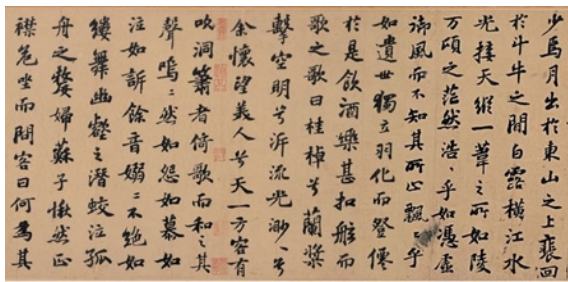 少焉月出於東山之上裵回
於斗牛之間白露橫江水
光接天縱一葦之所如陵
万頃之茫然浩〻乎如憑虛
御風而不知其所止飄〻乎
如遺世獨立羽化而登僊
於是飲酒樂甚扣舷而
歌之歌曰桂棹兮蘭槳
擊空明兮泝流光渺〻兮
余懷望美人兮天一方客有
吹洞簫者倚歌而和之其
聲嗚〻然如怨如慕如
泣如訴餘音嫋〻不絶如
縷舞幽壑之潛蛟泣孤
舟之嫠婦蘇子愀然正
襟危坐而問客曰何爲其